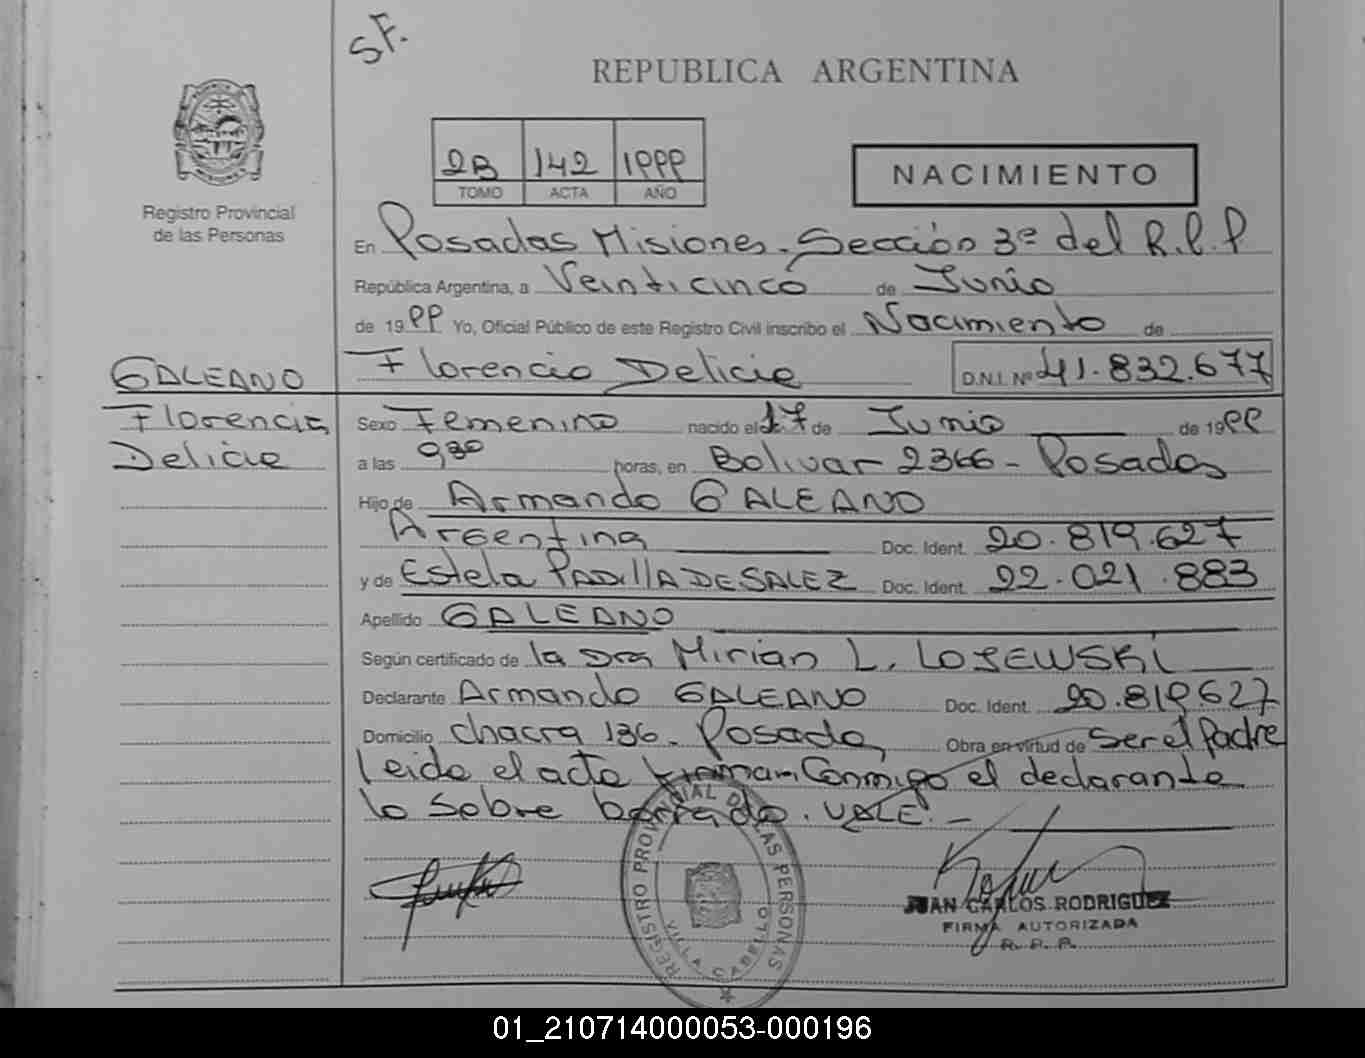 S.F.
REPUBLICA ARGENTINA
2B 142 1999
TOMO ACTA AÑO
NACIMIENTO
Registro Provincial
de las Personas
En Posadas Misiones - Sección 3ª del R.P.P
República Argentina, a Veinticinco de Junio
de 1999 Yo, Oficial Público de este Registro Civil inscribo el Nacimiento de
Florencia Delicia D.N.I. Nº 41.832.677
GALEANO
Florencia
Delicia
Sexo Femenino nacido el 17 de Junio de 1999
a las 9,30 horas, en Bolivar 2366 - Posadas
Hijo de Armando GALEANO
Argentina Doc. Ident. 20.819.627
y de Estela PADILLA DE SALEZ Doc. Ident. 22.021.883
Apellido GALEANO
Según certificado de la Dra Mirian L. LOSEWSKI
Declarante Armando GALEANO Doc. Ident. 20.819.627
Domicilio chacra 136 - Posadas Obra en virtud de Ser el Padre
leida el acta firman Conmigo el declarante
lo sobre borrado. VALE. -
REGISTRO PROVINCIAL DE LAS PERSONAS
VILLA CABELLO
JUAN CARLOS RODRIGUEZ
FIRMA AUTORIZADA
R. P. P.
01_210714000053-000196